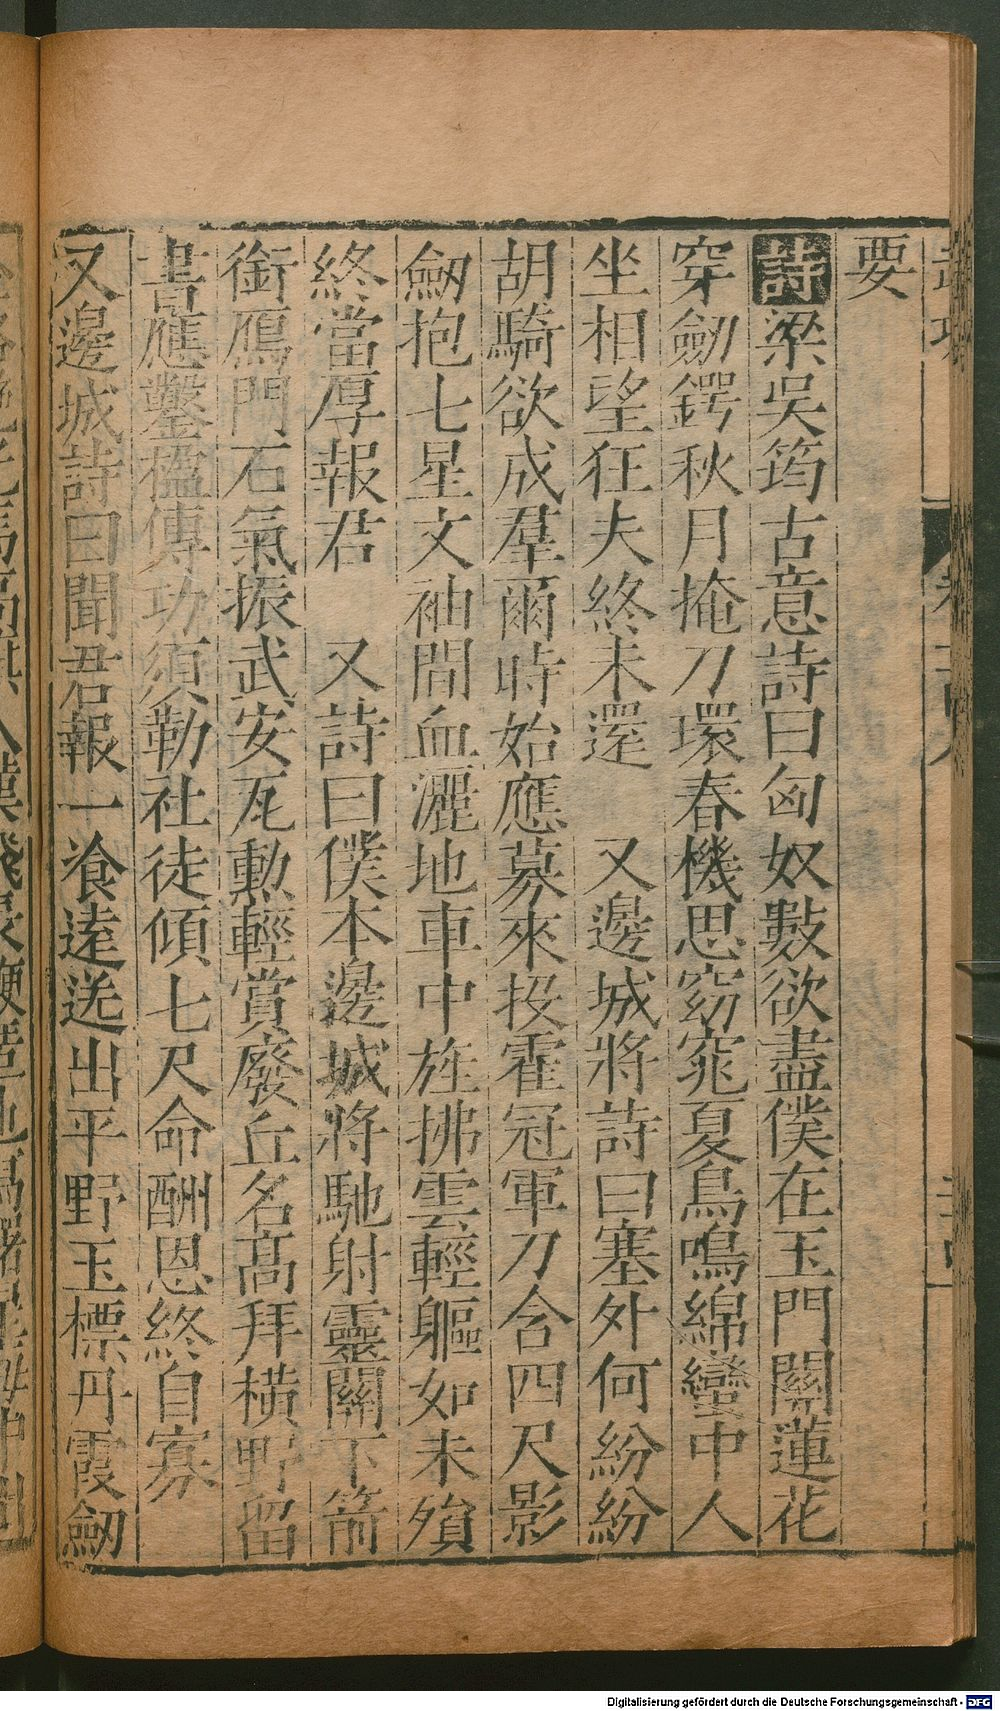 要
詩梁吳筠古意詩曰匈奴數欲盡僕在玉門關蓮花
穿劒鍔秋月掩刀環春機思窈窕夏鳥鳴綿蠻中人
坐相望狂夫終未還　又邊城將詩曰塞外何紛紛
胡騎欲成羣爾時始應募來投霍冠軍刀含四尺影
劒抱七星文袖間血灑地車中旌拂雲輕軀如未殞
終當厚報君　又詩曰僕本邊城將馳射靈關下箭
銜鴈門石氣振武安瓦勲輕賞廢丘名高拜橫野留
書應鑿楹傳功須勒社徒傾七尺命酬恩終自寡
又邊城詩曰聞君報一飡遠送出平野玉標丹霞劒
Digitalisierung gefördert durch die Deutsche Forschungsgemeinschaft - DFG